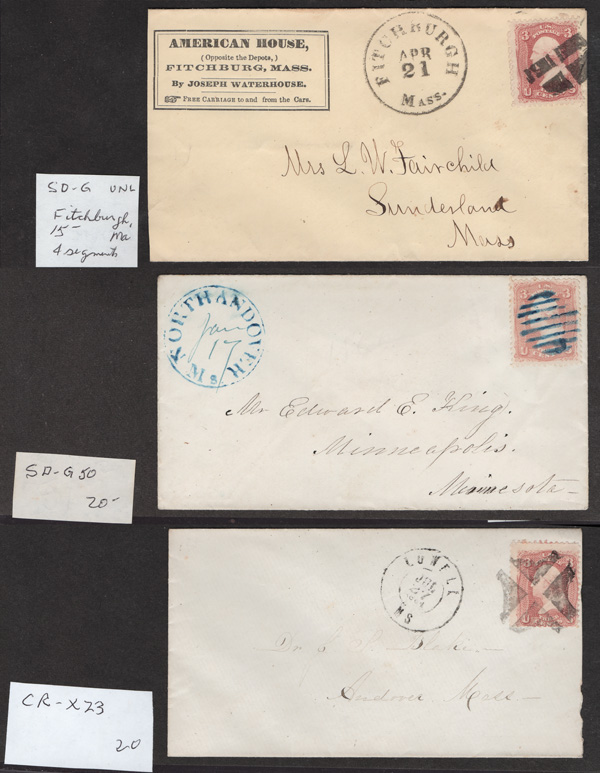 AMERICAN HOUSE,
(Opposite the Depots,)
FITCHBURG, MASS.
By JOSEPH WATERHOUSE.
FREE CARRIAGE to and from the Cars.
FITCHBURGH
APR
21
MASS.
3 3
Mrs L. W. Fairchild
Sunderland
Mass
SD-G UNL
Fitchburgh,
15- Ma
4 segments
NORTH ANDOVER
Ms
Jan
17
3
U
Mr Edward E. King.
Minneapolis.
Minnesota-
SD-G50
20-
LOWELL
JUL
27
MS
U
Dr
Andover Mass-
CR-XZ3
20